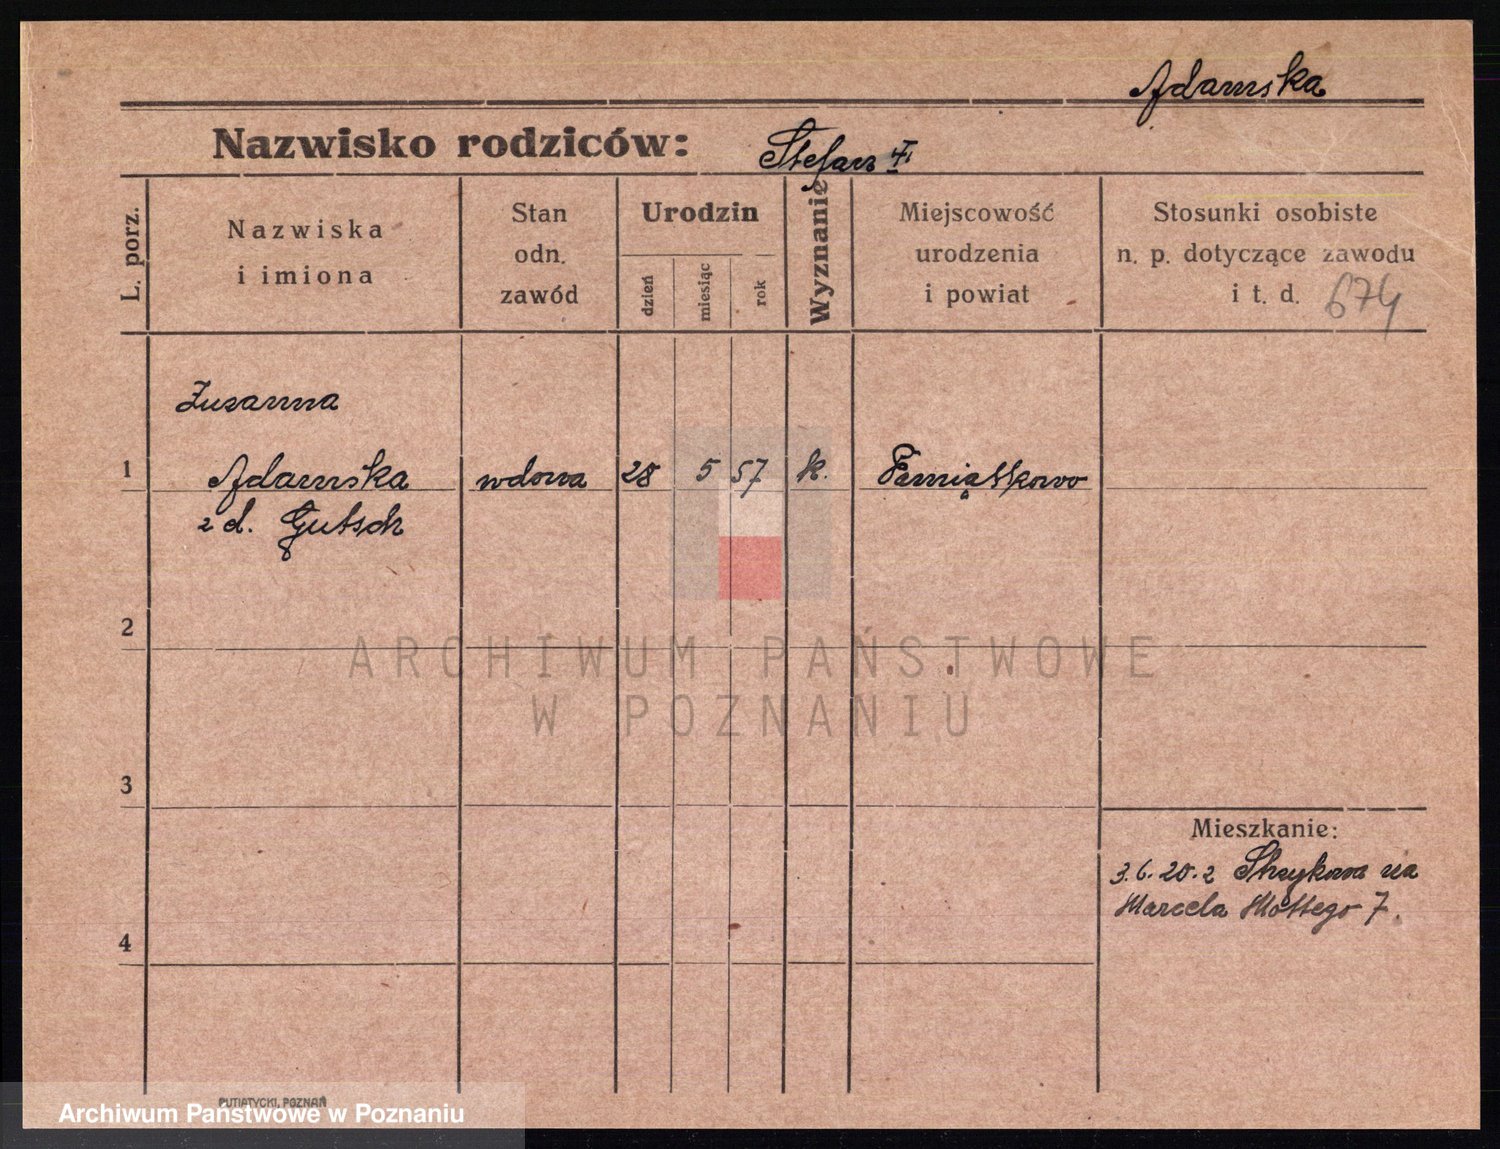 Adamska
Nazwisko rodziców: Stefan
L. porz.
Nazwiska
i imiona
Stan
odn.
zawód
Urodzin
dzień
miesiąc
rok
Wyznanie
Miejscowość
urodzenia
i powiat
Stosunki osobiste
n. p. dotyczące zawodu
i t. d. 674
Zusanna
1 Adamska wdowa 28 5 57 k. Pamiątkowo
z d. Gutsch
2
3
4
Mieszkanie:
3.6.20. z na
Marcela Mottego 7.
ARCHIWUM PAŃSTWOWE
W POZNANIU
PUTIATYCKI, POZNAŃ
Archiwum Państwowe w Poznaniu